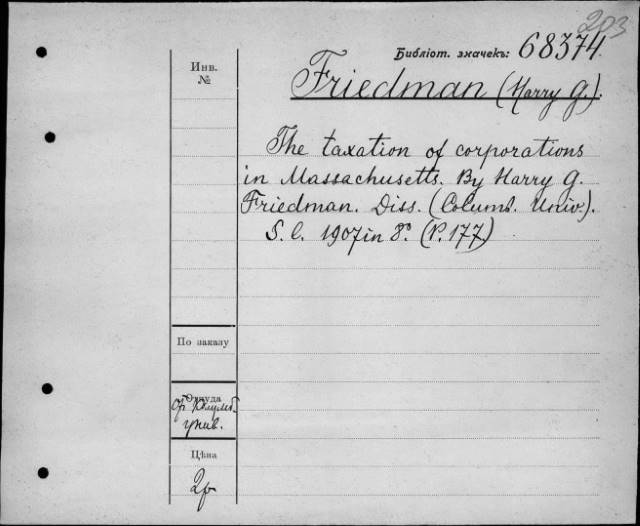 203
Библіот. значекъ: 68374.
Инв.
№
Friedman (Harry G.).
The taxation of corporations
in Massachusetts. By Harry G.
Friedman. Diss. (Columb. Univ.).
S. l. 1907 in 8º. (P. 177)
По заказу
Откуда
От Колумб.
унив.
Цѣна
2р